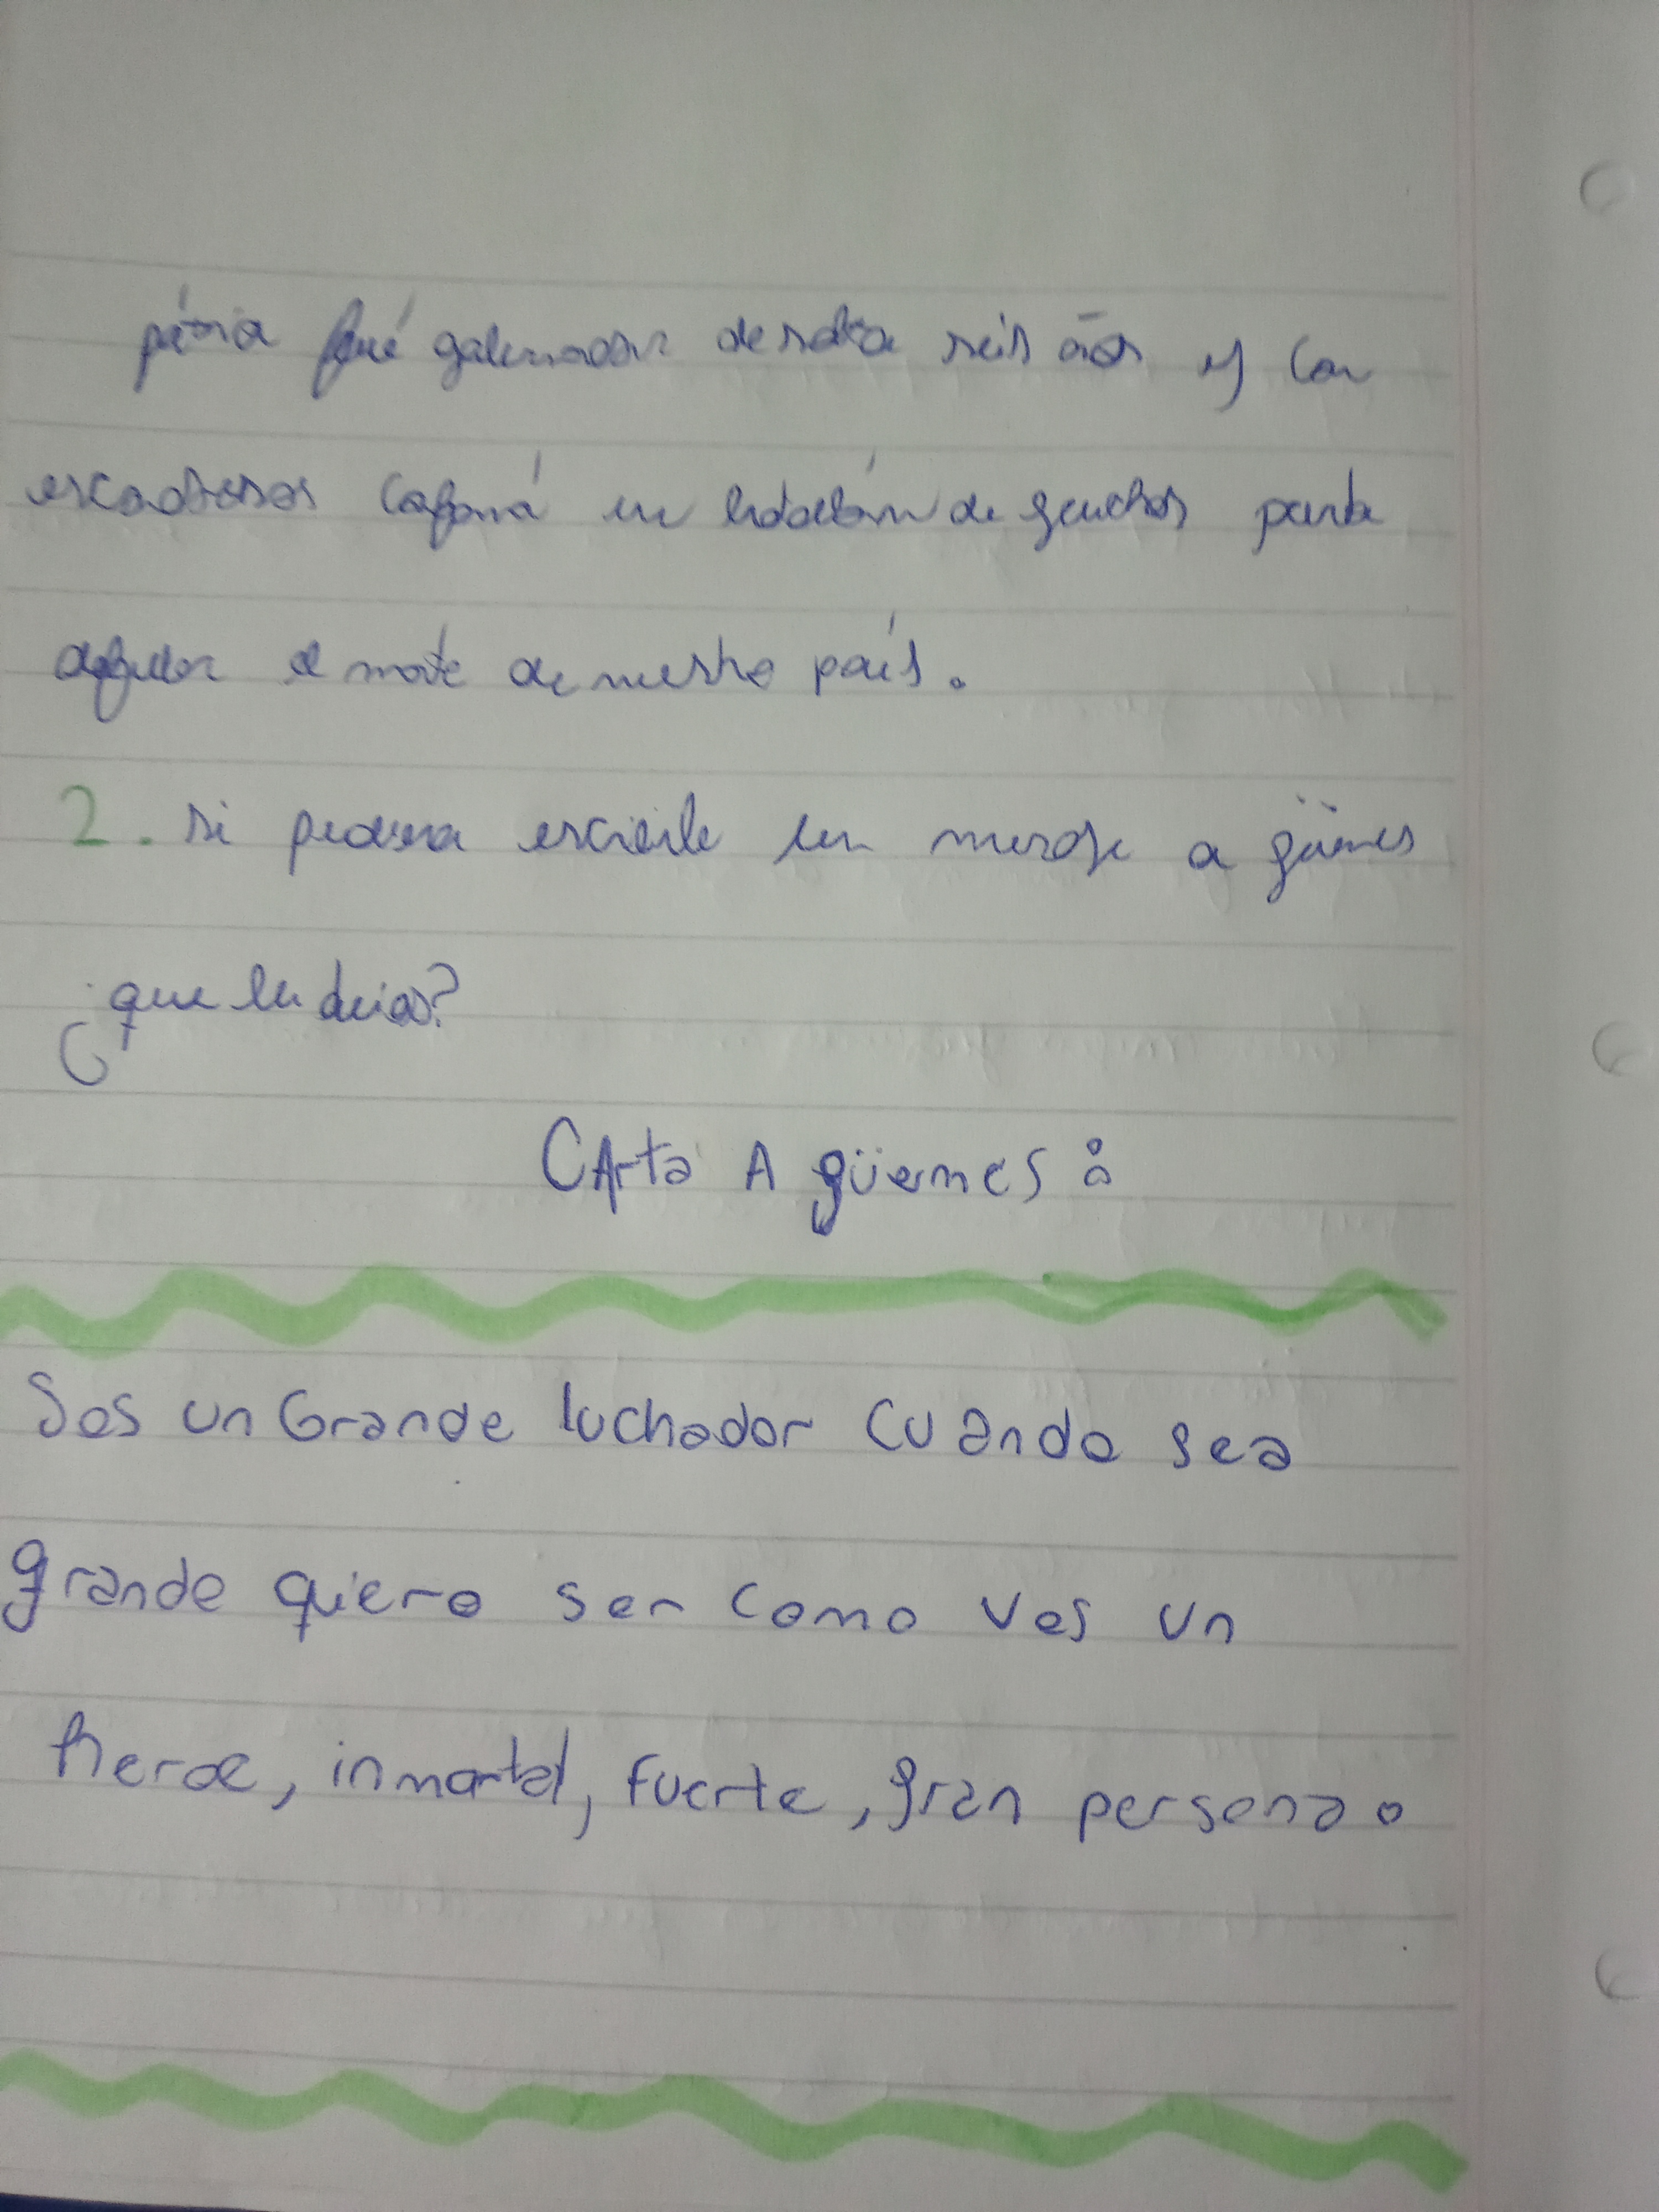 pátria fué gobernador de salta seis años y con
escadosos conformá un batallón de gauchos para
defender el norte de nuestro país.
2. si pudiera escribirle un mensaje a güemes
¿que le dirías?
CArta A güemes:
Sos un Grande luchador Cuando sea
grande quiero ser como vos un
heroe, inmortal, fuerte, gran persona.